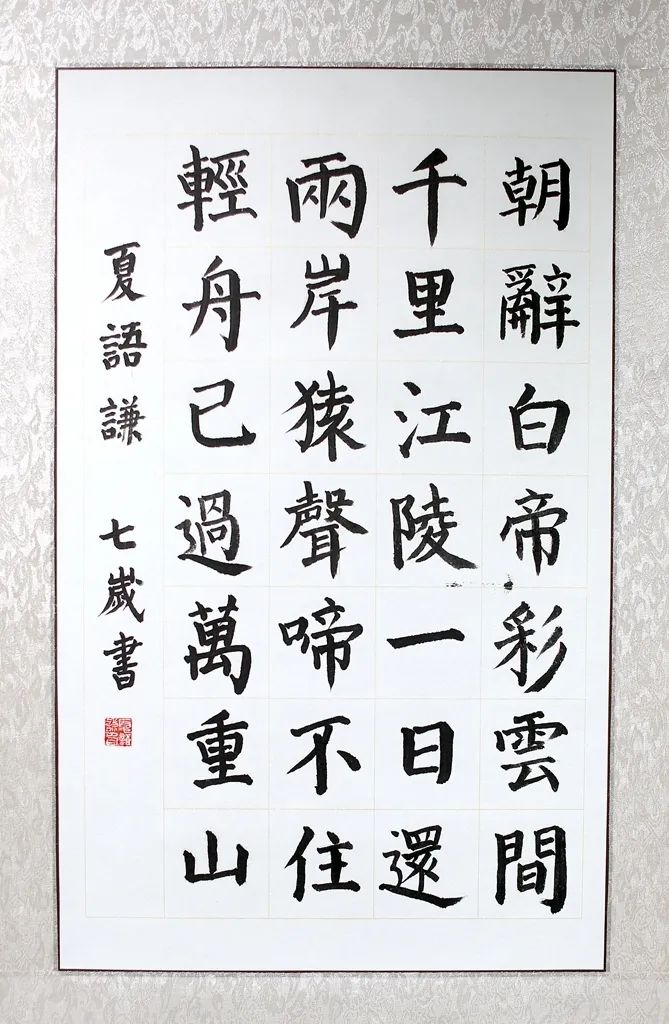 朝辭白帝彩雲間
千里江陵一日還
兩岸猿聲啼不住
輕舟已過萬重山
夏語謙 七歲書